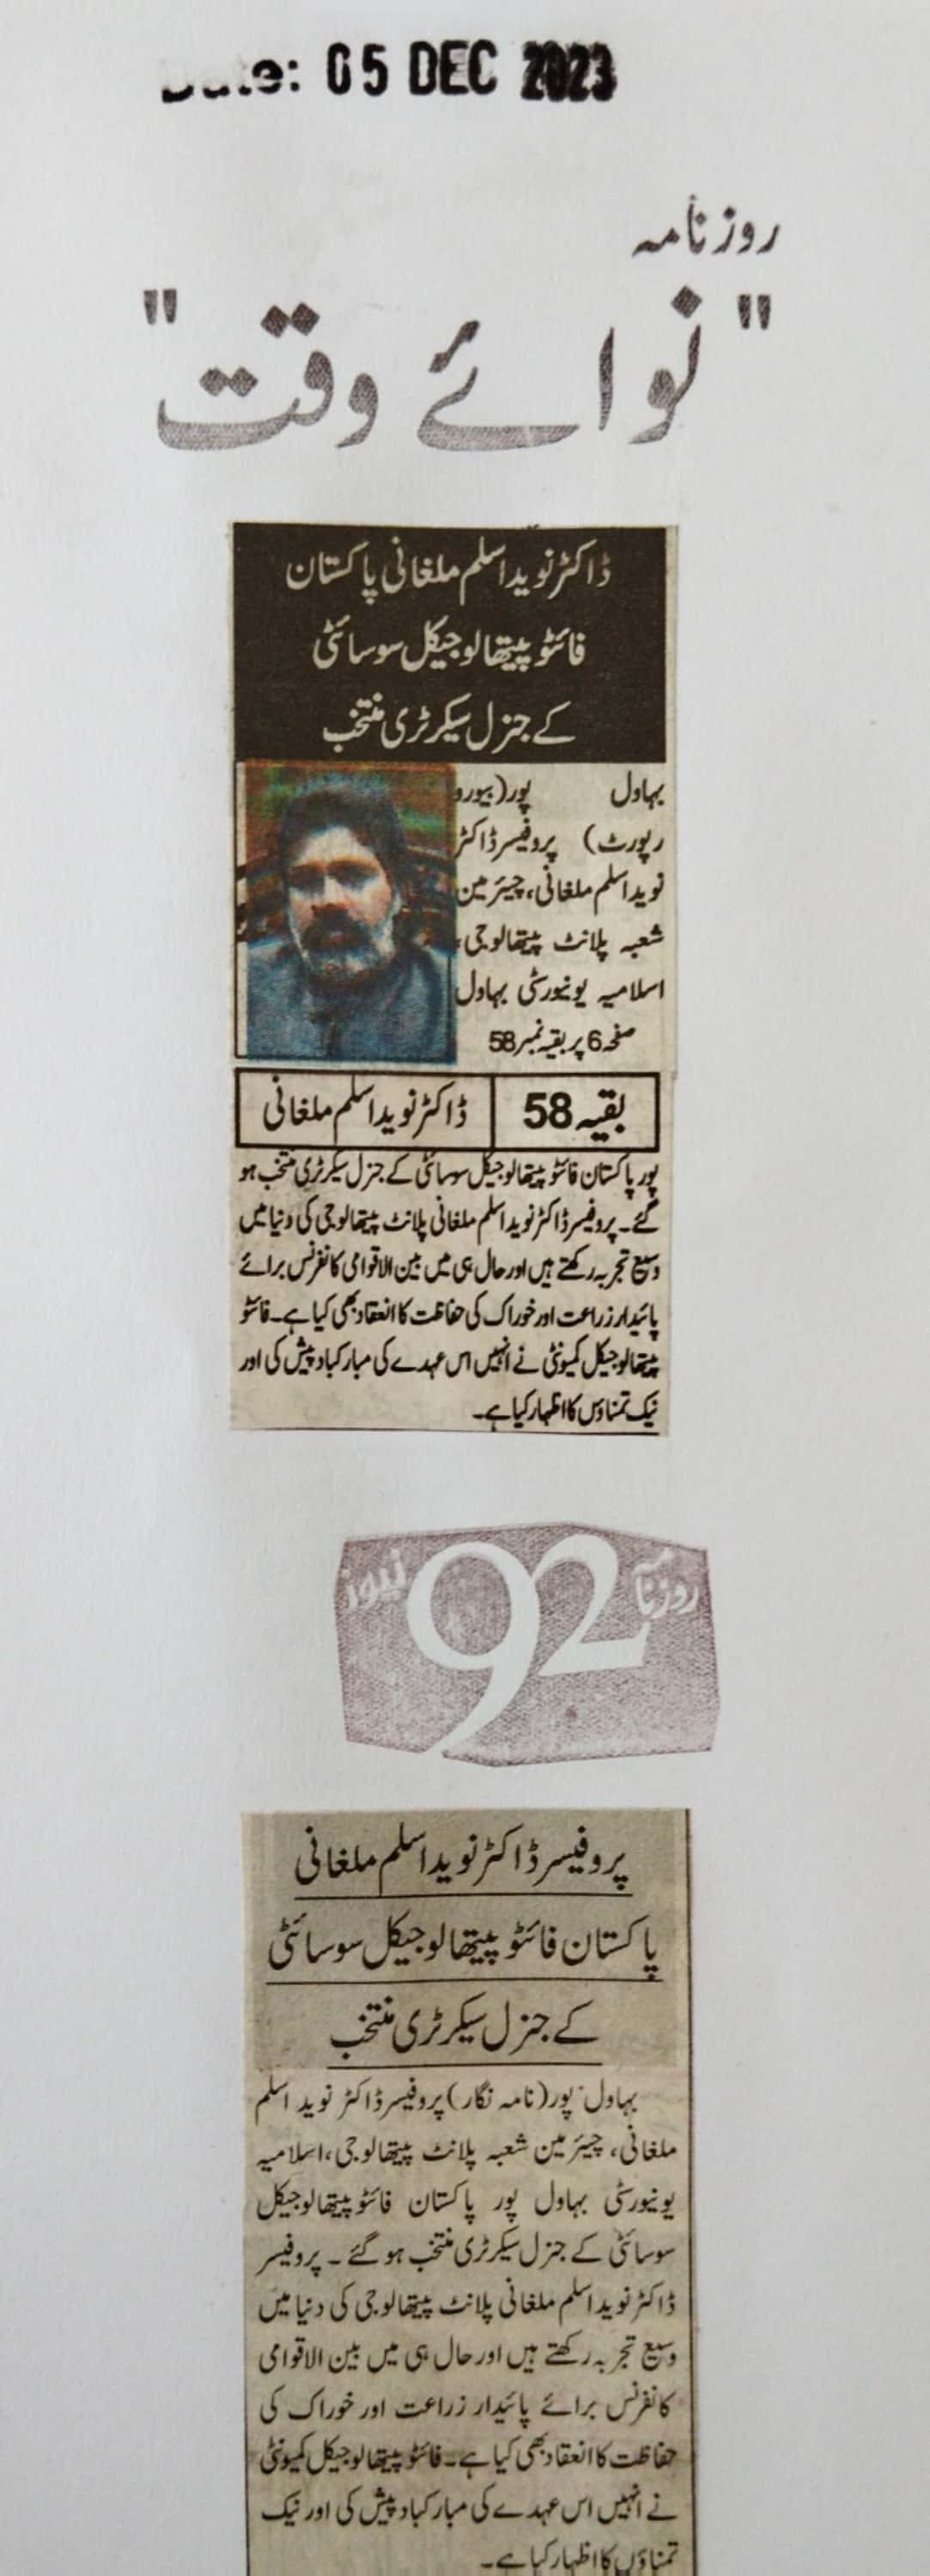 Date: 05 DEC 2023
روزنامہ
"نوائے وقت"
ڈاکٹر نوید اسلم ملغانی پاکستان
فائٹو پیتھالوجیکل سوسائٹی
کے جنرل سیکرٹری منتخب
بہاول پور (بیورو
رپورٹ) پروفیسر ڈاکٹر
نوید اسلم ملغانی، چیئرمین
شعبہ پلانٹ پیتھالوجی،
اسلامیہ یونیورسٹی بہاول
صفحہ 6 پر بقیہ نمبر 58
بقیہ 58 ڈاکٹر نوید اسلم ملغانی
پور پاکستان فائٹو پیتھالوجیکل سوسائٹی کے جنرل سیکرٹری منتخب ہو
گئے۔ پروفیسر ڈاکٹر نوید اسلم ملغانی پلانٹ پیتھالوجی کی دنیا میں
وسیع تجربہ رکھتے ہیں اور حال ہی میں بین الاقوامی کانفرنس برائے
پائیدار زراعت اور خوراک کی حفاظت کا انعقاد بھی کیا ہے۔ فائٹو
پیتھالوجیکل کمیونٹی نے انہیں اس عہدے کی مبارکباد پیش کی اور
نیک تمناؤں کا اظہار کیا ہے۔
روزنامہ 92 نیوز
پروفیسر ڈاکٹر نوید اسلم ملغانی
پاکستان فائٹو پیتھالوجیکل سوسائٹی
کے جنرل سیکرٹری منتخب
بہاول پور (نامہ نگار) پروفیسر ڈاکٹر نوید اسلم
ملغانی، چیئرمین شعبہ پلانٹ پیتھالوجی، اسلامیہ
یونیورسٹی بہاول پور پاکستان فائٹو پیتھالوجیکل
سوسائٹی کے جنرل سیکرٹری منتخب ہو گئے۔ پروفیسر
ڈاکٹر نوید اسلم ملغانی پلانٹ پیتھالوجی کی دنیا میں
وسیع تجربہ رکھتے ہیں اور حال ہی میں بین الاقوامی
کانفرنس برائے پائیدار زراعت اور خوراک کی
حفاظت کا انعقاد بھی کیا ہے۔ فائٹو پیتھالوجیکل کمیونٹی
نے انہیں اس عہدے کی مبارکباد پیش کی اور نیک
تمناؤں کا اظہار کیا ہے۔